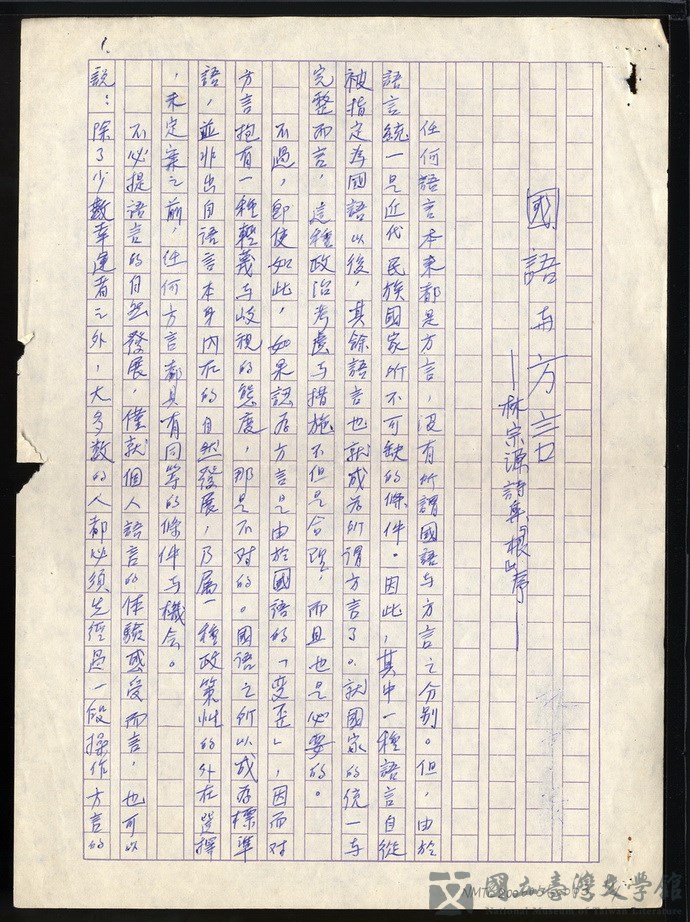 1.
國語与方言
—林宗源詩集『根』序—
任何語言本来都是方言，没有所謂國語与方言之分别。但，由於
語言統一是近代民族國家所不可缺的條件。因此，其中一種語言自從
被指定為國語以後，其餘語言也就成為所謂方言了。就國家的統一与
完整而言，這種政治考慮与措施不但是合理，而且也是必要的。
不過，即使如此，如果認為方言是由於國語的「变歪」，因而对
方言抱有一種輕蔑与歧視的態度，那是不对的。國語之所以成為標準
語，並非出自語言本身内在的自然發展，乃属一種政策性的外在選擇
，未定案之前，任何方言都具有同等的條件与機会。
不必提語言的自然發展，僅就個人語言的体驗感受而言，也可以
說：除了少數幸運者之外，大多数的人都必須先經過一段操作方言的
國立臺灣文學館
National Museum of Taiwan Literature